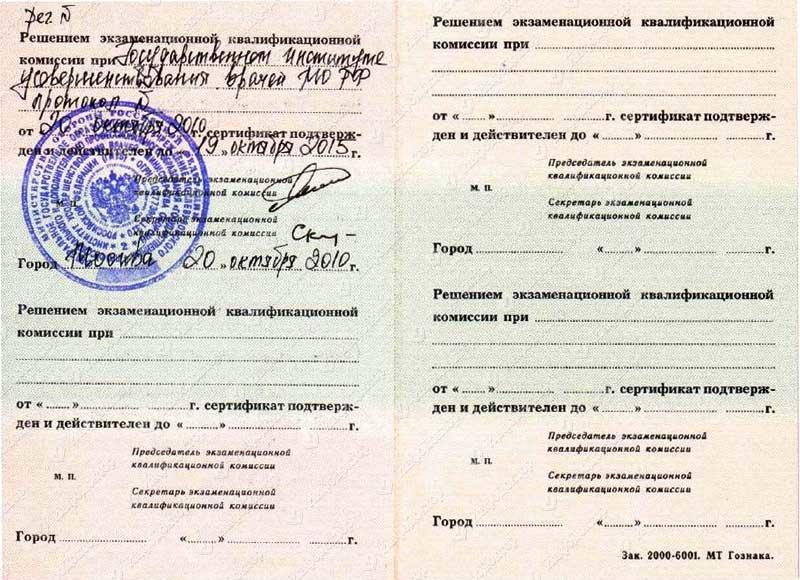 Рег. №
Решением экзаменационной квалификационной
комиссии при Государственном институте
усовершенствования врачей МО РФ
протокол №
от « 20 » октября 2010 г. сертификат подтверж-
ден и действителен до « 19 » октября 2015 г.
Председатель экзаменационной
квалификационной комиссии
М. П.
Секретарь экзаменационной
квалификационной комиссии
Город Москва « 20 » октября 2010 г.
Решением экзаменационной квалификационной
комиссии при
от « » г. сертификат подтверж-
ден и действителен до « » г.
Председатель экзаменационной
квалификационной комиссии
М. П.
Секретарь экзаменационной
квалификационной комиссии
Город « » г.
Решением экзаменационной квалификационной
комиссии при
от « » г. сертификат подтверж-
ден и действителен до « » г.
Председатель экзаменационной
квалификационной комиссии
М. П.
Секретарь экзаменационной
квалификационной комиссии
Город « » г.
Решением экзаменационной квалификационной
комиссии при
от « » г. сертификат подтверж-
ден и действителен до « » г.
Председатель экзаменационной
квалификационной комиссии
М. П.
Секретарь экзаменационной
квалификационной комиссии
Город « » г.
Зак. 2000-6001. МТ Гознака.